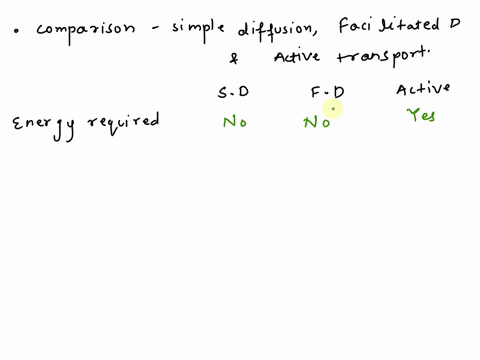 • comparison - simple diffusion, Facilitated D
& Active transport.
S-D F-D Active
Energy required No No Yes